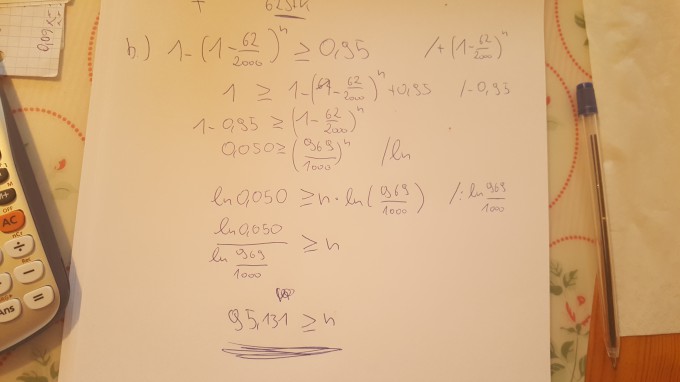 62514
b) 1-(1-62/2000)^n ≥ 0,95 /+(1-62/2000)^n
1 ≥ 1-(1-62/2000)^n+0,95 /-0,95
1-0,95 ≥ (1-62/2000)^n
0,050 ≥ (969/1000)^n /ln
ln0,050 ≥ n·ln(969/1000) /:ln 969/1000
ln0,050/ln 969/1000 ≥ n
95,131 ≥ n
AC
OFF
M+
÷
-
=
Ans